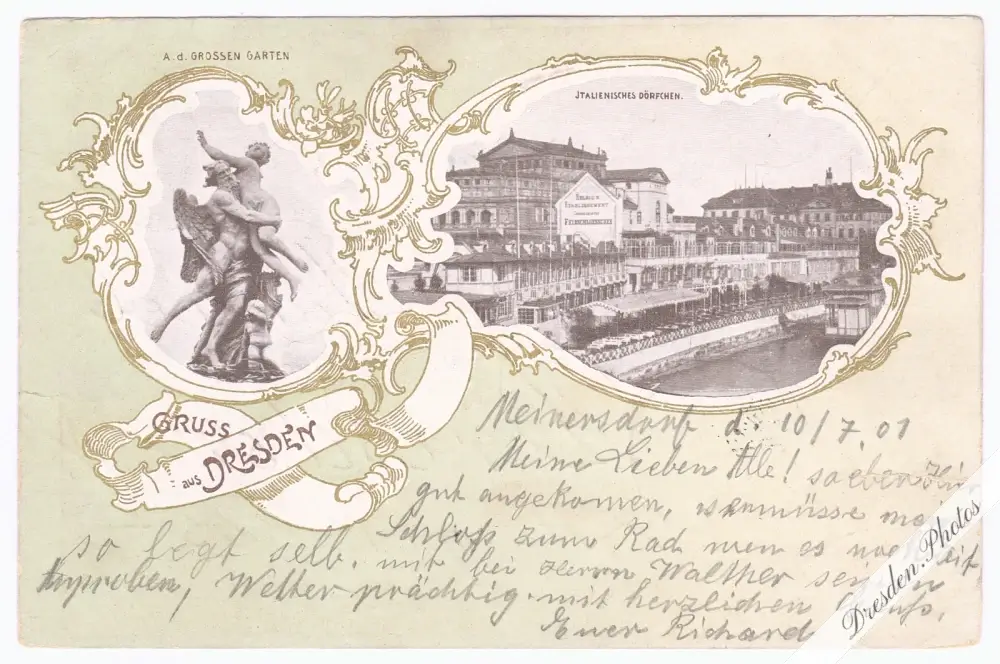 A. d. GROSSEN GARTEN
JTALIENISCHES DÖRFCHEN.
GRUSS
aus DRESDEN
Meinersdorf d. 10/7.01
Meine Lieben Alle! soeben hier
gut angekomen,
Schloß zum Rad wen es
so legt selb. mit bei Herrn Walther
Wetter prächtig. mit herzlichen
Euer Richard
Dresden.Photos